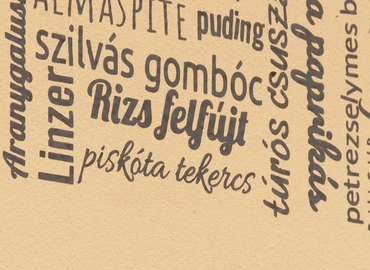 Aranygalus
ALMÁSPITE
puding
szilvás gombóc
Linzer
Rizs felfújt
piskóta tekercs
túrós csusz
a paprikás
petrezselymes b